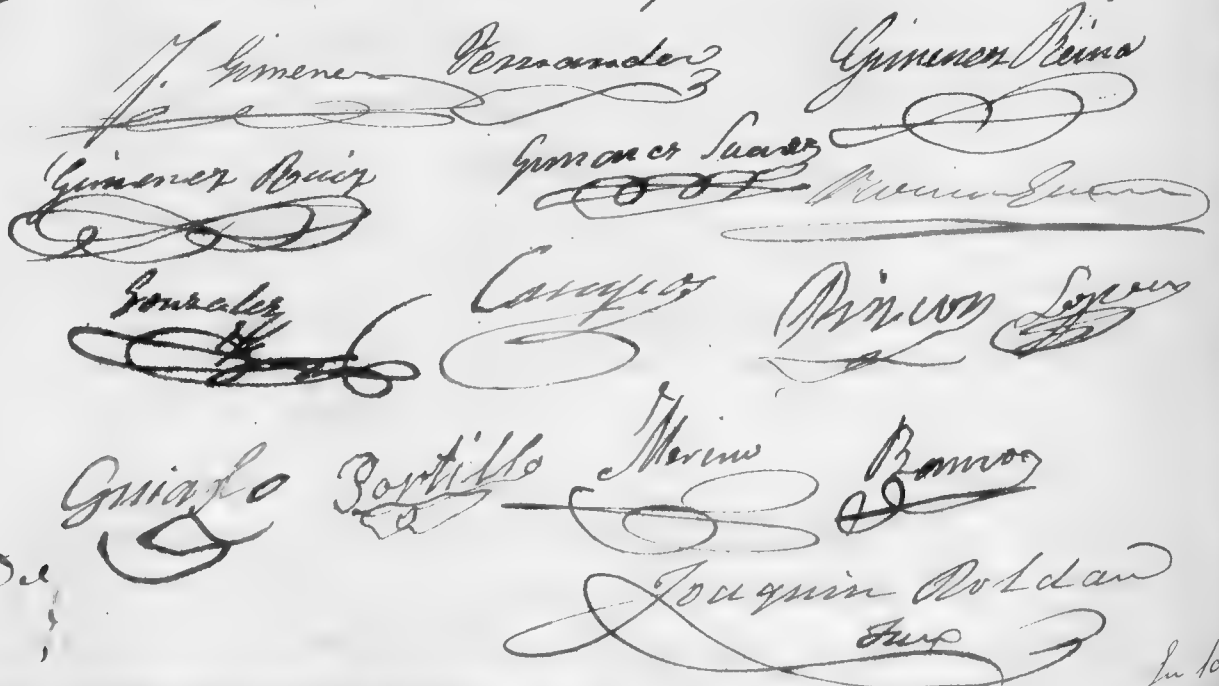 J. Gimenez Fernandez Gimenez Reina
Gimenez Ruiz Gimenez Suarez
Gonzalez Campos Rincon Lopez
Portillo Merino Ramos
Del
Joaquin Roldan